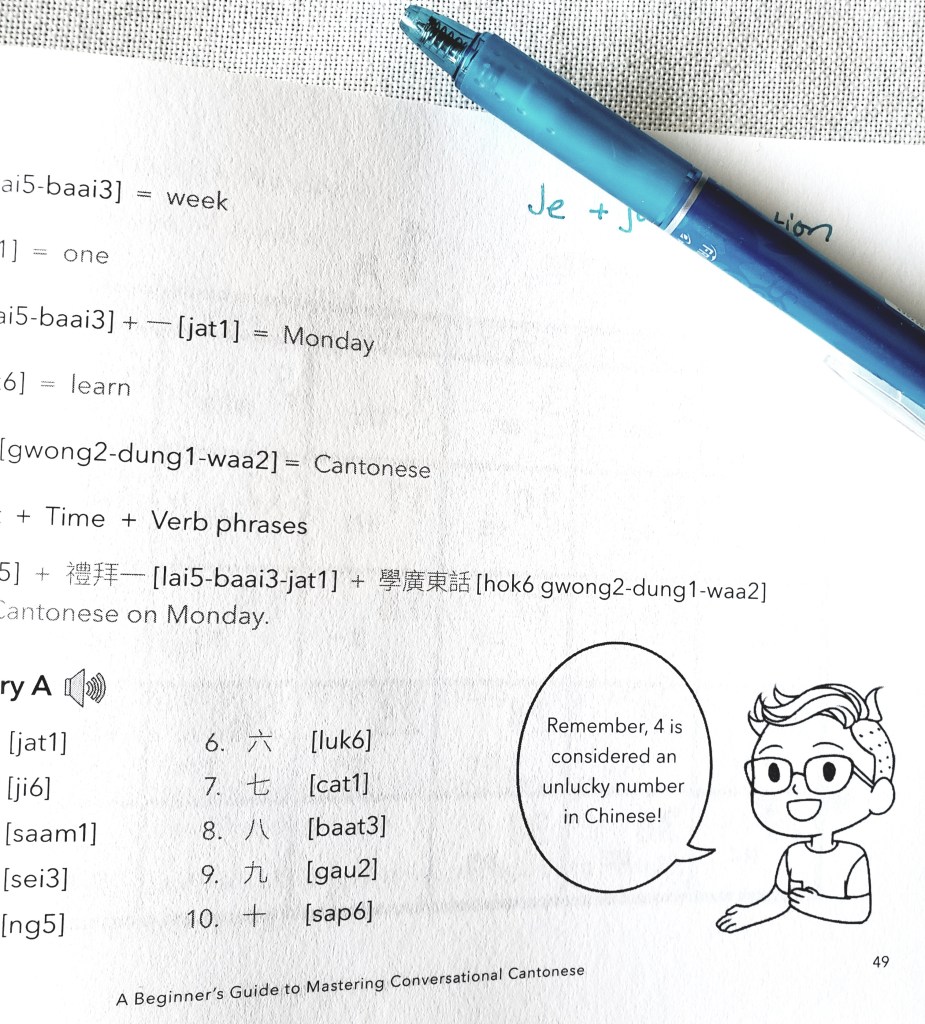 ai5-baai3] = week
Je + Lion
1] = one
ai5-baai3] + 一 [jat1] = Monday
6] = learn
[gwong2-dung1-waa2] = Cantonese
+ Time + Verb phrases
5] + 禮拜一 [lai5-baai3-jat1] + 學廣東話 [hok6 gwong2-dung1-waa2]
Cantonese on Monday.
ry A
[jat1] 6. 六 [luk6]
[ji6] 7. 七 [cat1]
[saam1] 8. 八 [baat3]
[sei3] 9. 九 [gau2]
[ng5] 10. 十 [sap6]
Remember, 4 is
considered an
unlucky number
in Chinese!
49
A Beginner's Guide to Mastering Conversational Cantonese